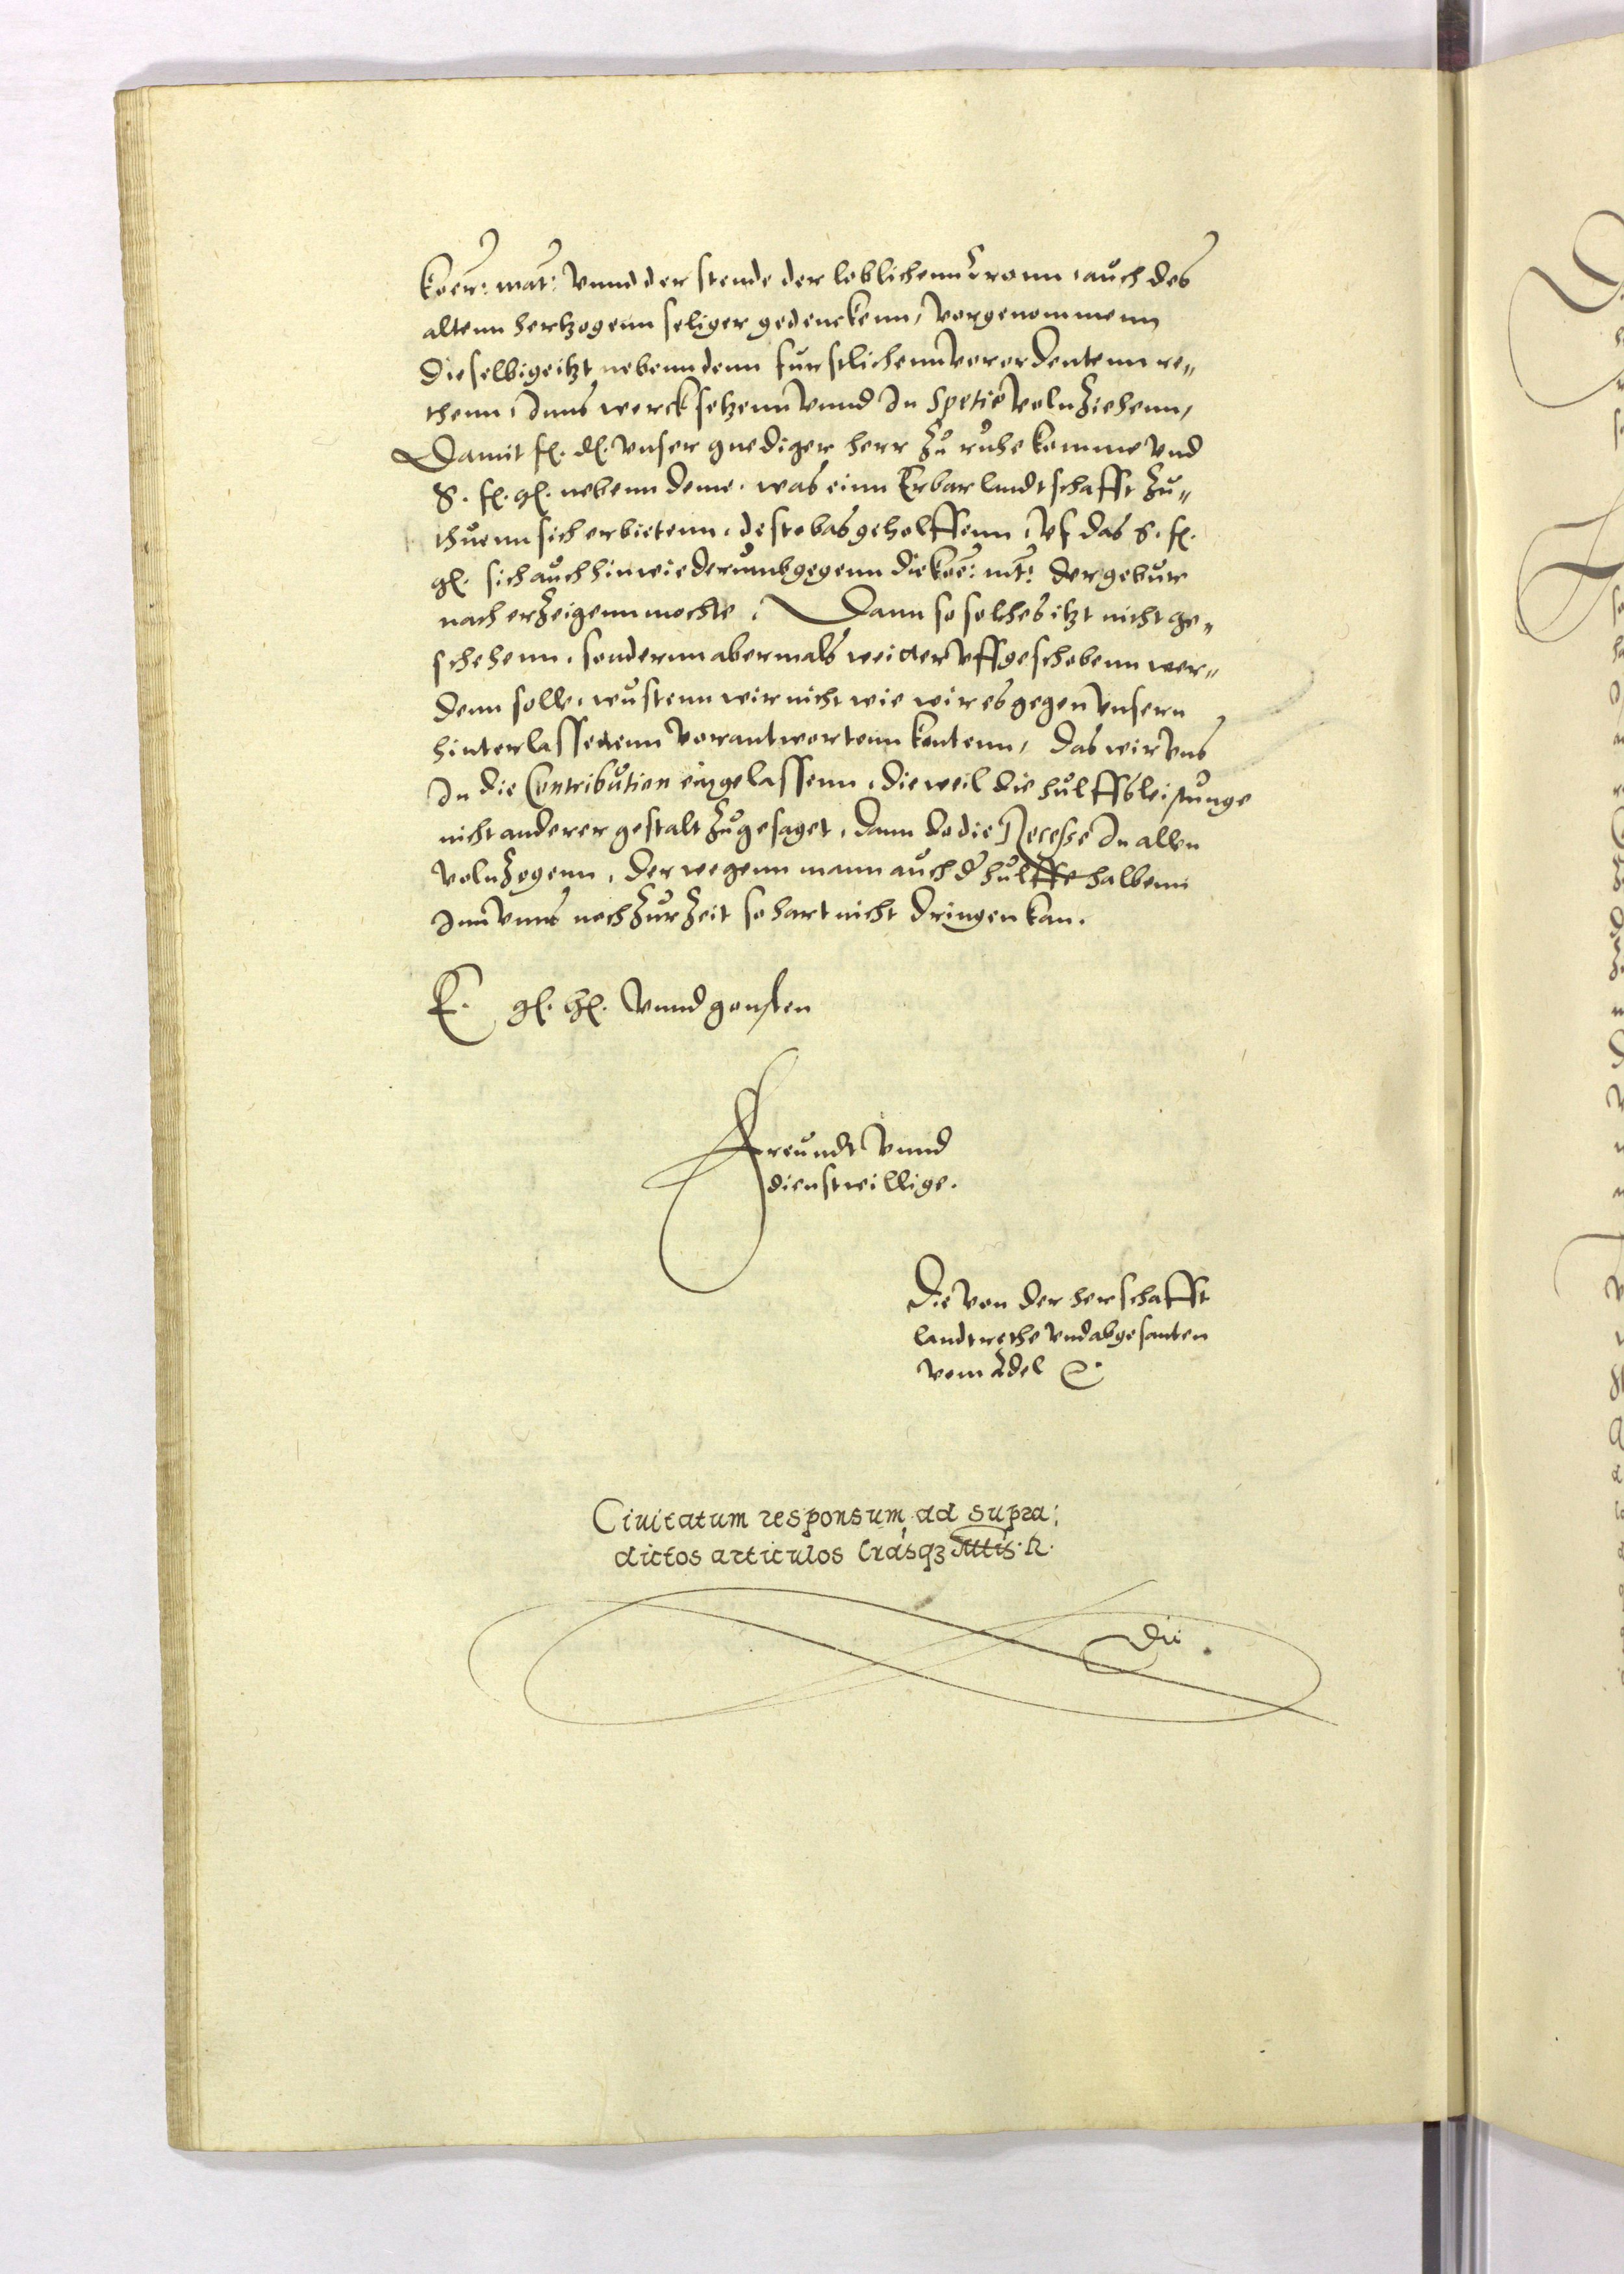 Koer: mat: vnnd der stende der loblichenn Cronn, auch des
altenn hertzogenn seliger gedenckenn, vorgenommenn
Dieselbige itzt nebenn denn furstlichenn vorordentenn re„
thenn, Inns werck setzenn vnnd In Spetie volnziehenn,
Damit fl. dl. vnser gnediger herr zu ruhe komme vnd
S. fl. gl. nebenn deme, was einn Erbar landtschafft zu„
thuenn sich erbietenn, desto bas geholffenn, vf das S. fl.
gl. sich auch hinwiederumb gegenn die koe: mt: der gebur
nach erzeigenn mochte. Dann so solches itzt nicht ge„
schehenn, sondernn abermals weitter vffgeschobenn wer„
denn solle, wustenn wir nicht wie wir es gegen vnsern
hinterlassenenn vorantwortenn kontenn, das wir vns
In die Contribution eingelassenn, die weil die hulffsleistunge
nicht anderer gestalt zugesaget, dann do die Recesse In allen
volnzogenn, derwegenn mann auch d' hulffe halbenn
Inn vnns noch zur Zeit so hart nicht dringen kan.
E. gl. hl. vnnd gonsten
Freundt vnnd
dienstwillige.
Die von der herschafft
landtrethe vnd abgesanten
vom Adel
Ciuitatum responsum ad supra:
dictos articulos lrasqz Mttis. R.
Die